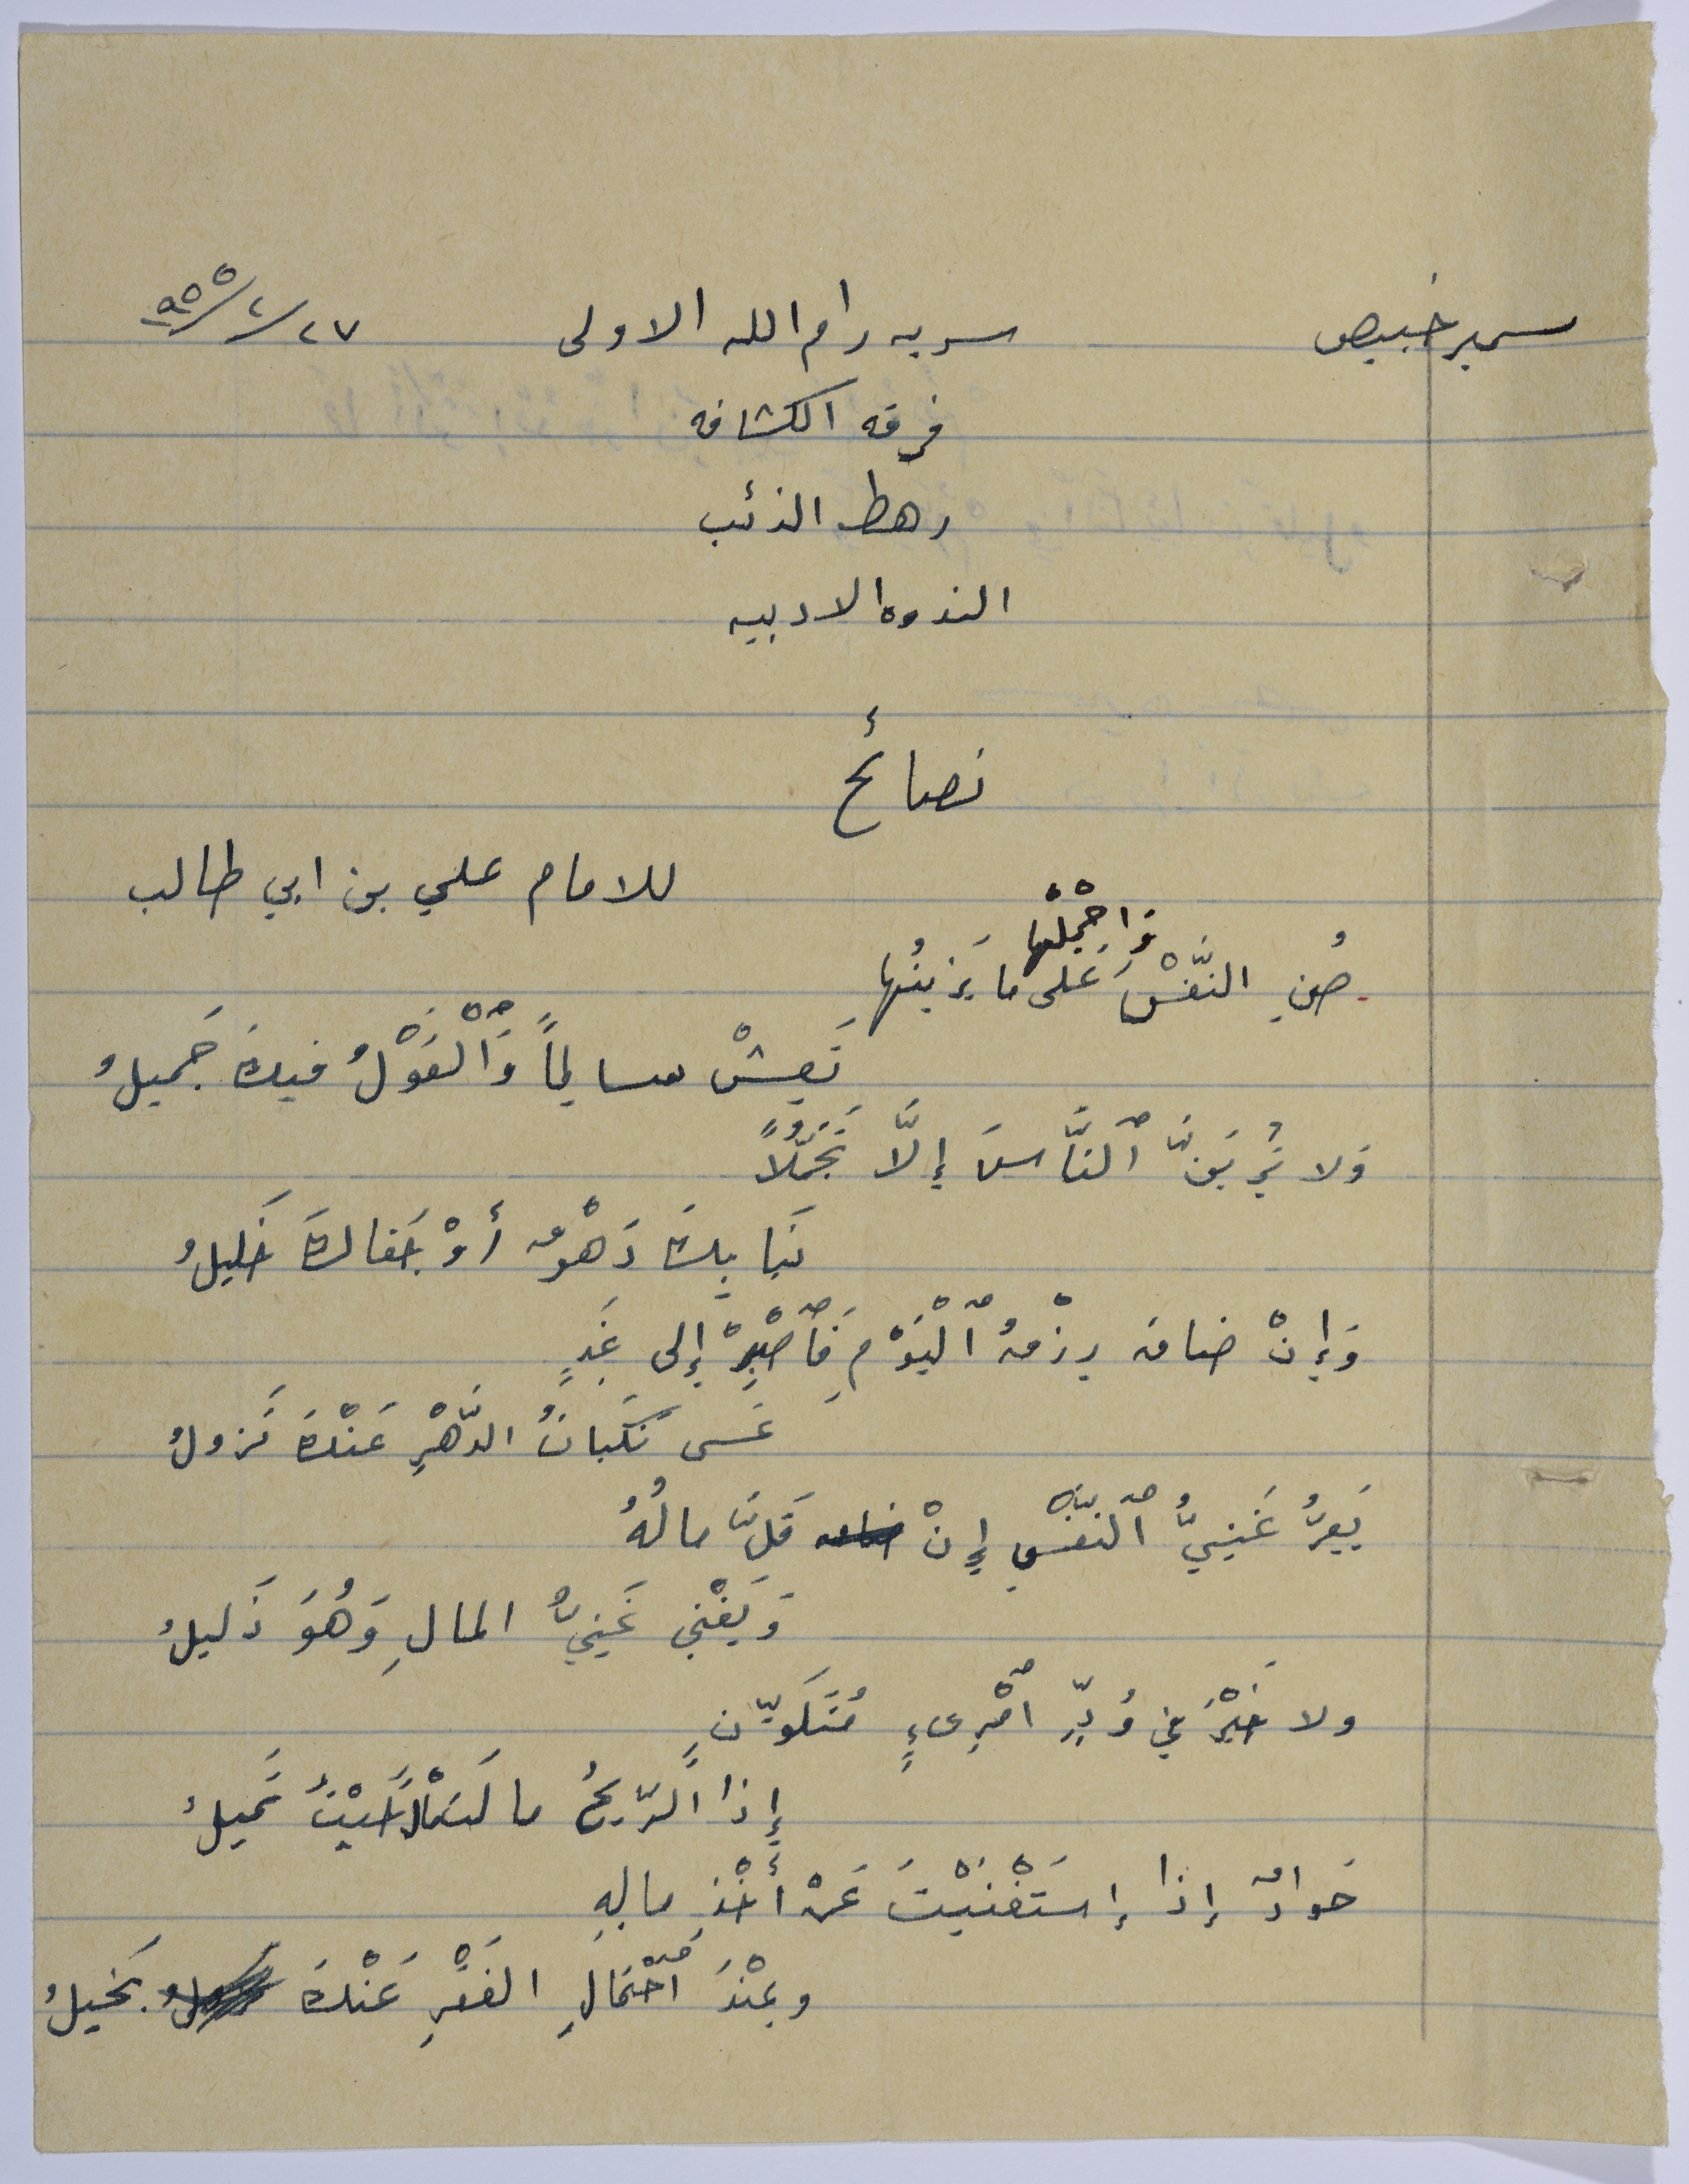 سمير خبيص سريه رام الله الاولى ٢٧/٢/٩٥٥
فرقه الكشافه
رهط الذئب
الندوه الادبيه
نصائح
للامام علي بن ابي طالب
صُنِ النَّفْسَ وَاحْمِلْها عَلى ما يَزينُها
تَعِشْ سالِماً وَٱلْقَوْلُ فيكَ جَميلُ
وَلا تُرِيَنَّ ٱلنَّاسَ إِلَّا تَجَمُّلاً
نَبا بِكَ دَهْرٌ أَوْ جَفاكَ خَليلُ
وَإِنْ ضاقَ رِزْقُ ٱلْيَوْمِ فَٱصْبِرْ إِلى غَدٍ
عَسى نَكَباتُ الدَّهْرِ عَنْكَ تَزولُ
يَعِزُّ غَنِيُّ ٱلنَّفْسِ إِنْ قَلَّ مالُهُ
وَيَغْنى غَنِيُّ المالِ وَهُوَ ذَليلُ
ولا خَيْرَ في وُدِّ ٱمْرِىءٍ مُتَلَوِّنٍ
إِذا ٱلرّيحُ مالَتْ مالَ حَيْثُ تَميلُ
جَوادٌ إِذا إِسْتَغْنَيْتَ عَنْ أَخْذِ مالِهِ
وعِنْدَ ٱحْتِمالِ الفَقْرِ عَنْكَ بَخيلُ